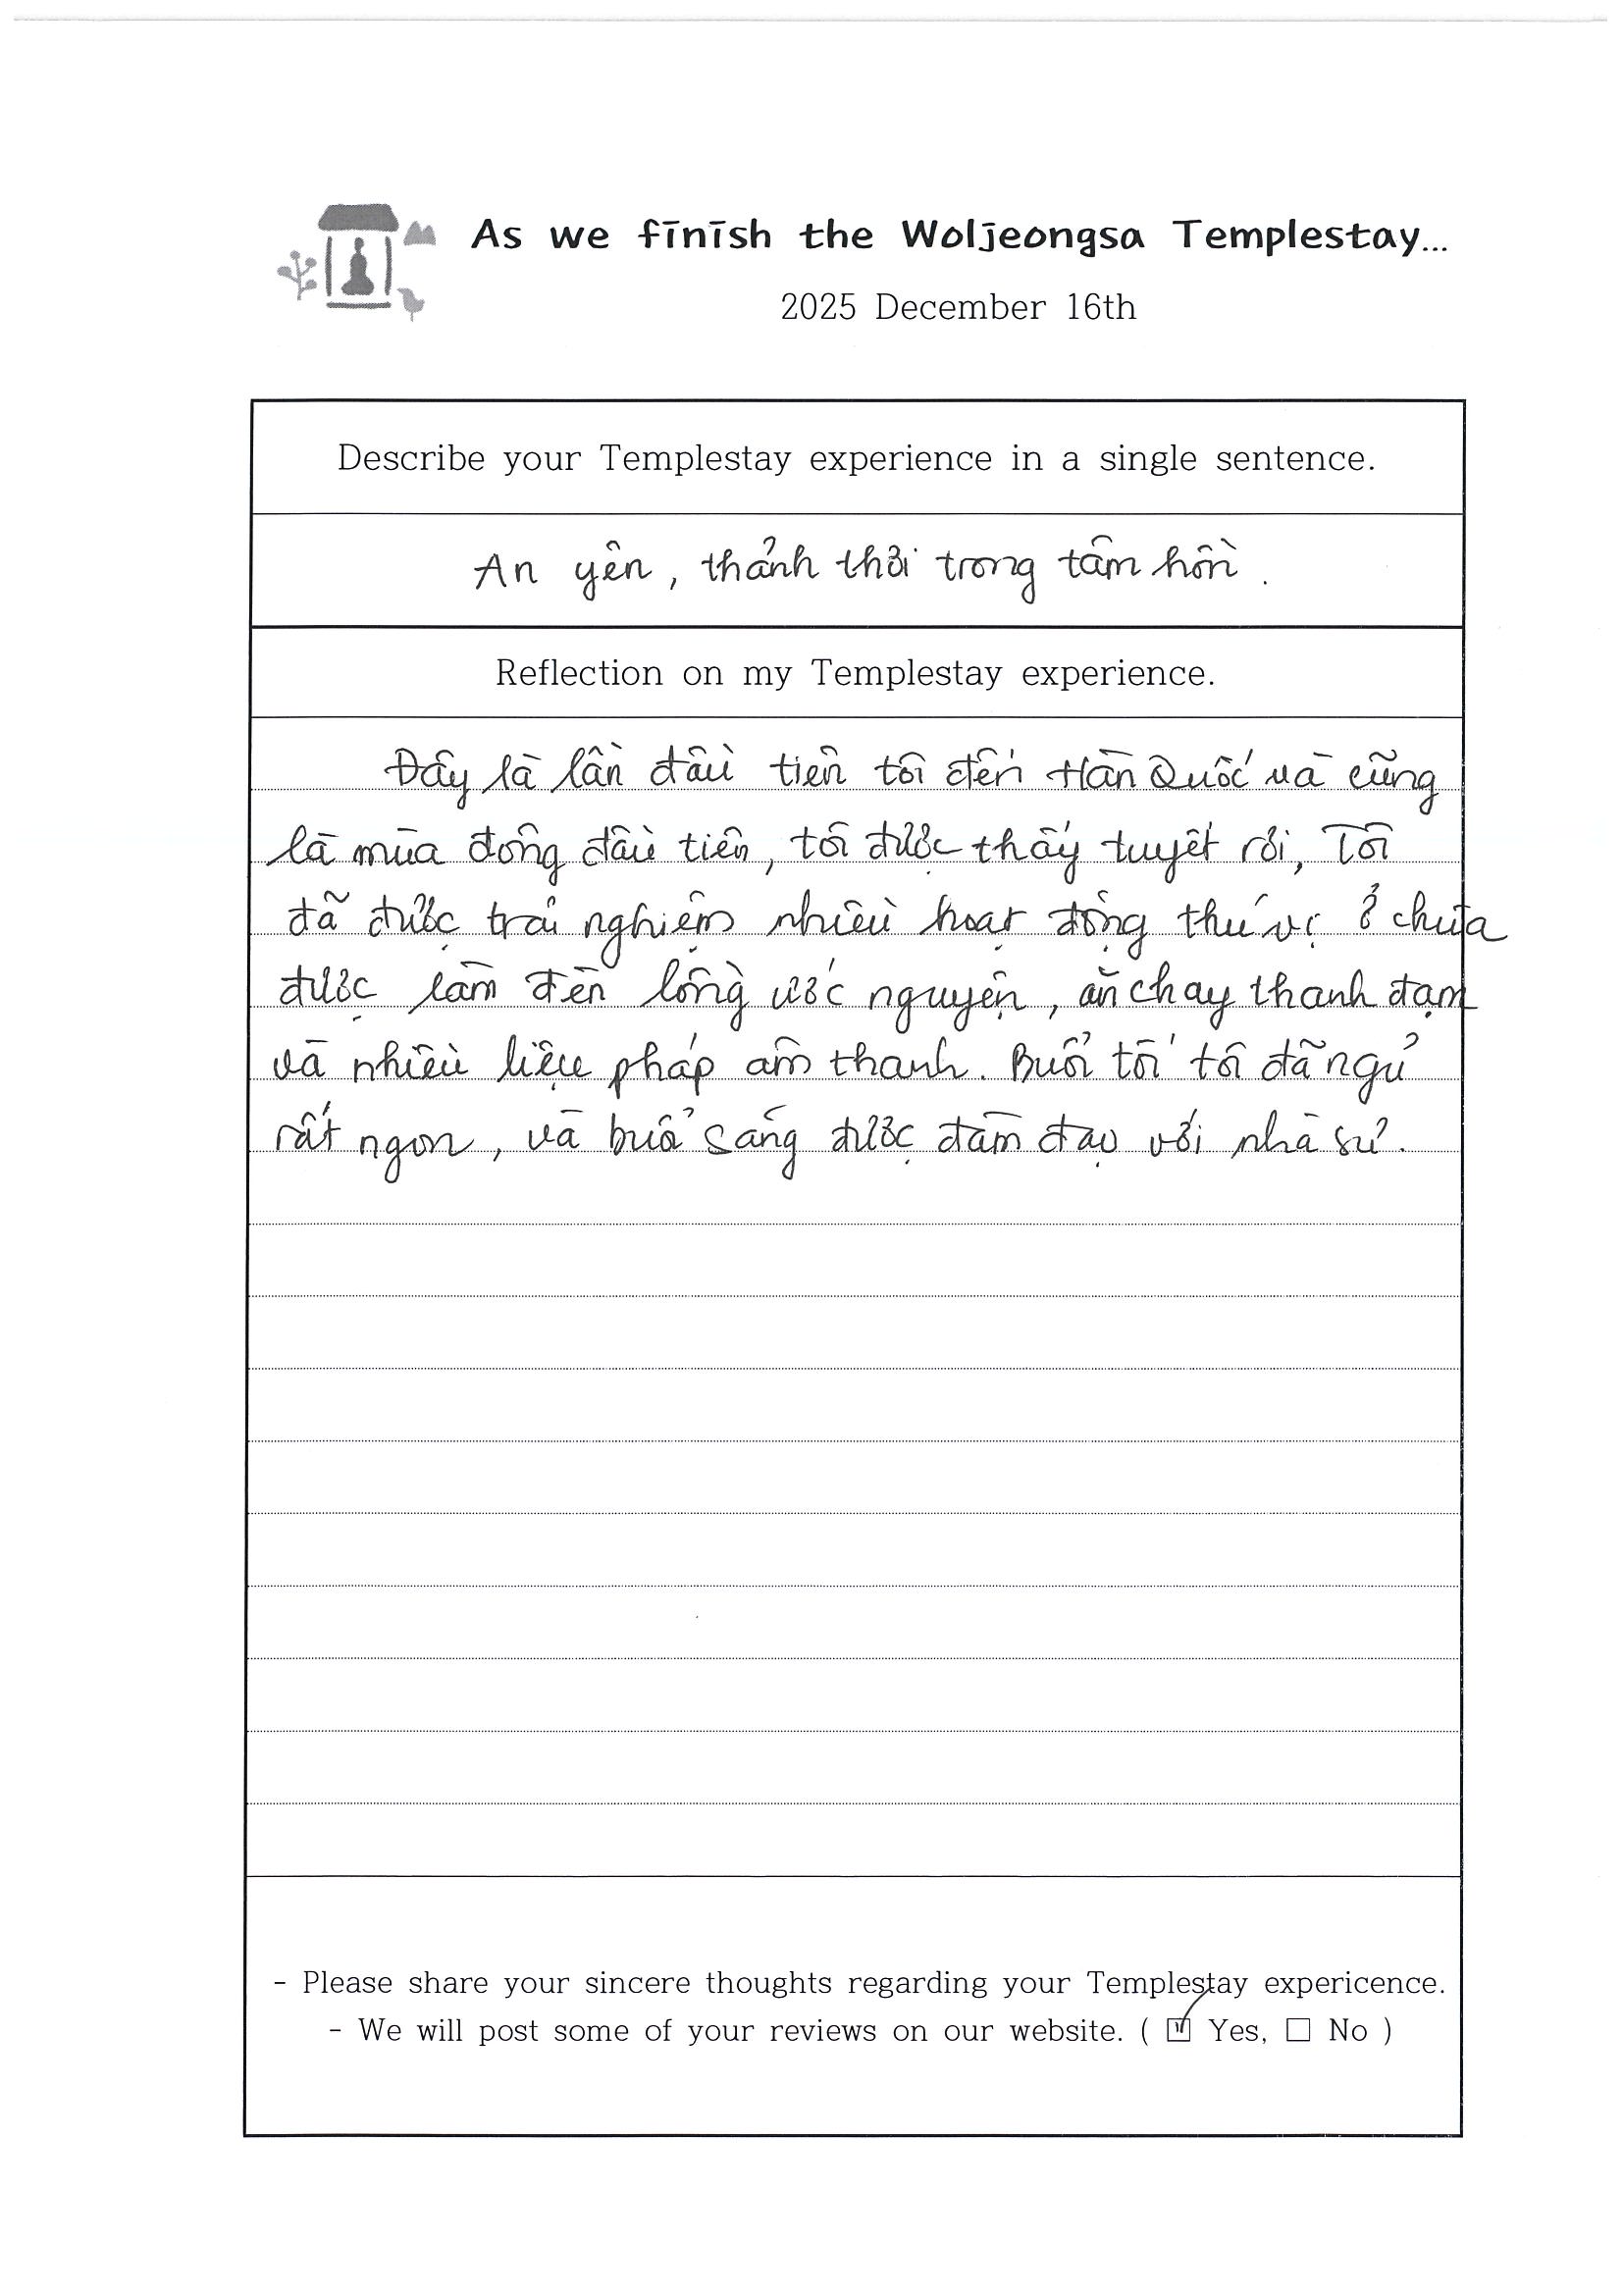 As we finish the Woljeongsa Templestay...
2025 December 16th
Describe your Templestay experience in a single sentence.
An yên, thảnh thơi trong tâm hồn.
Reflection on my Templestay experience.
Đây là lần đầu tiên tôi đến Hàn Quốc và cũng
là mùa đông đầu tiên, tôi được thấy tuyết rơi, Tôi
đã được trải nghiệm nhiều hoạt động thú vị ở chùa
được làm đèn lồng ước nguyện, ăn chay thanh đạm
và nhiều liệu pháp âm thanh. Buổi tối tôi đã ngủ
rất ngon, và buổi sáng được đàm đạo với nhà sư.
- Please share your sincere thoughts regarding your Templestay expericence.
- We will post some of your reviews on our website. ( ☑ Yes, ☐ No )